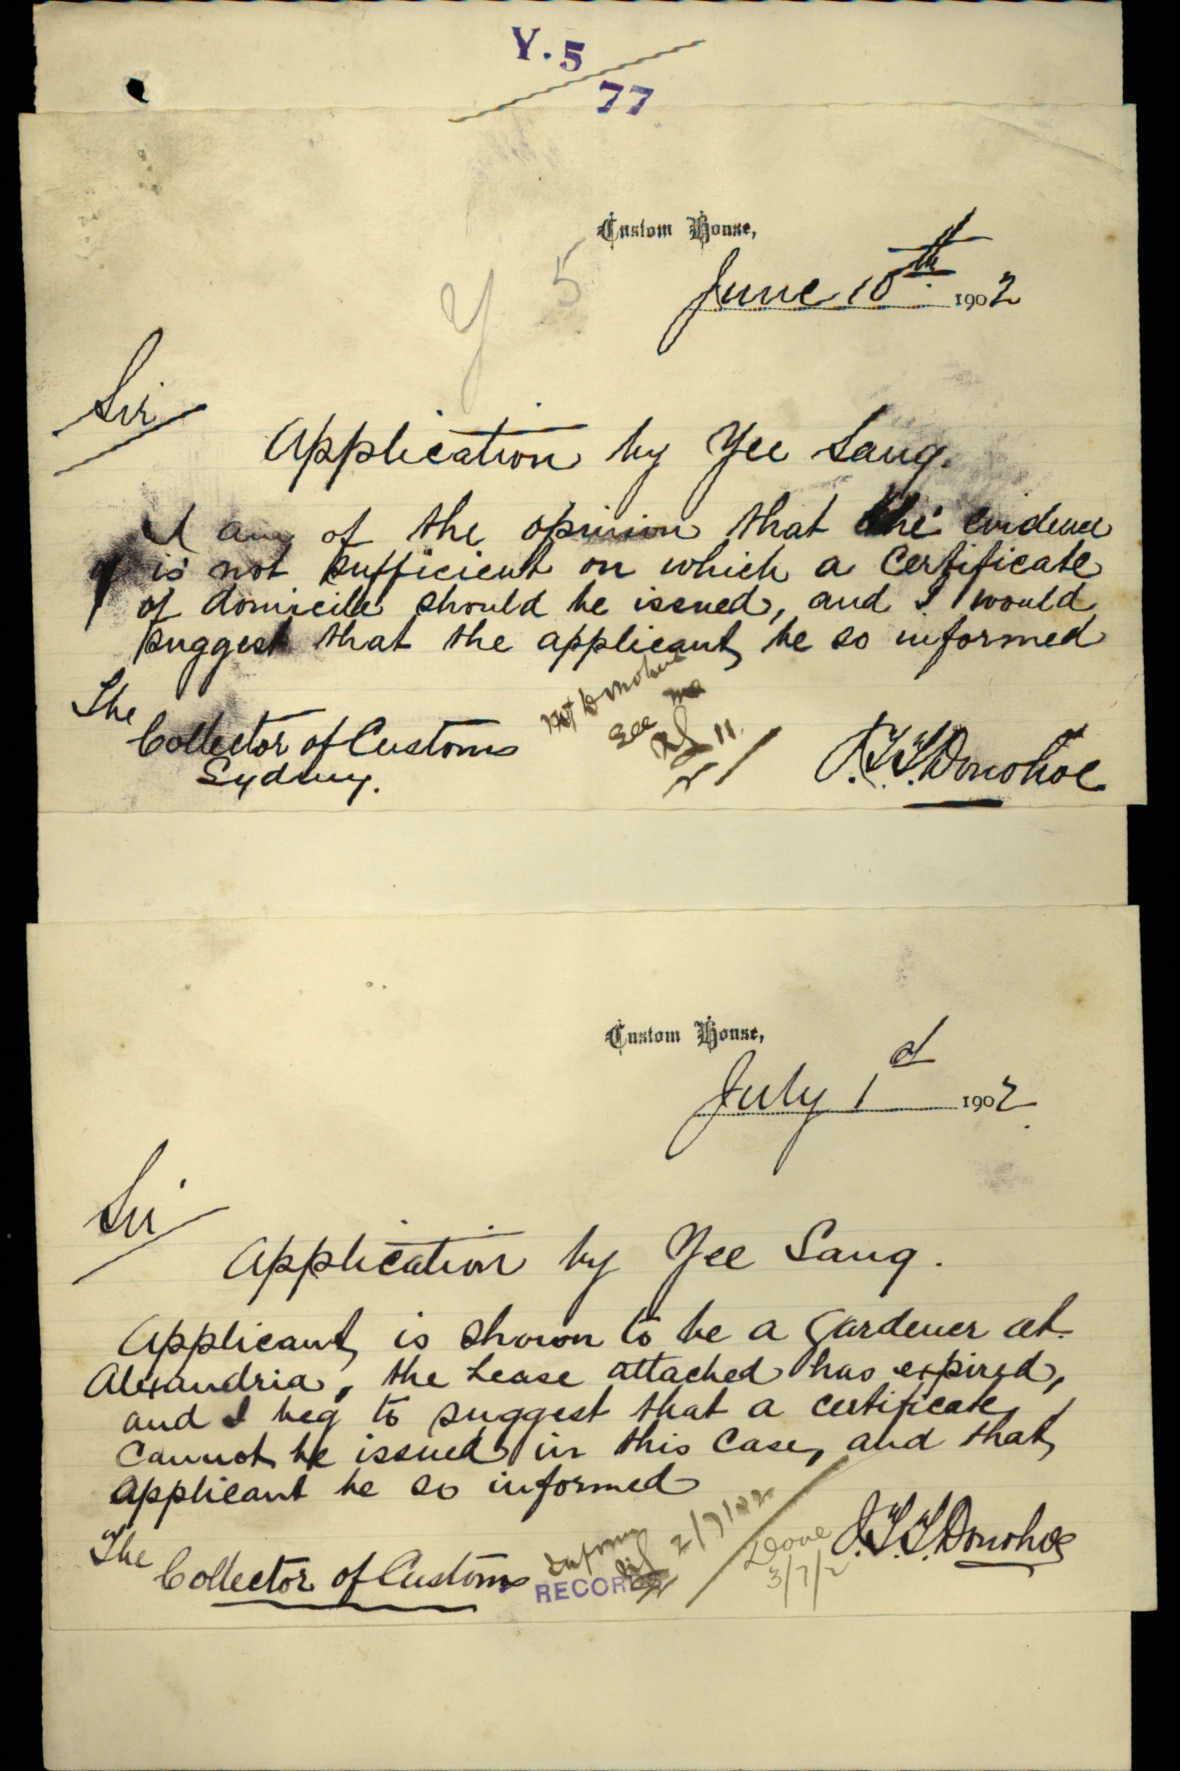 Y. 5
77
Custom House,
June 10th 1902
Y 5
Sir
Application by Yee Sang.
I am of the opinion that the evidence
is not sufficient on which a certificate
of domicile should be issued, and I would
suggest that the applicant be so informed
The
Collector of Customs
Sydney.
Mr Donohoe
See me
11
J.T.T. Donohoe
Custom House,
July 1st 1902
Sir
Application by Yee Sang.
Applicant is shown to be a Gardener at
Alexandria, the Lease attached has expired,
and I beg to suggest that a certificate
cannot be issued in this case, and that
applicant be so informed
The
Collector of Customs
Inform
2/7/02
RECORDS
Done
3/7/2
J.T.T. Donohoe